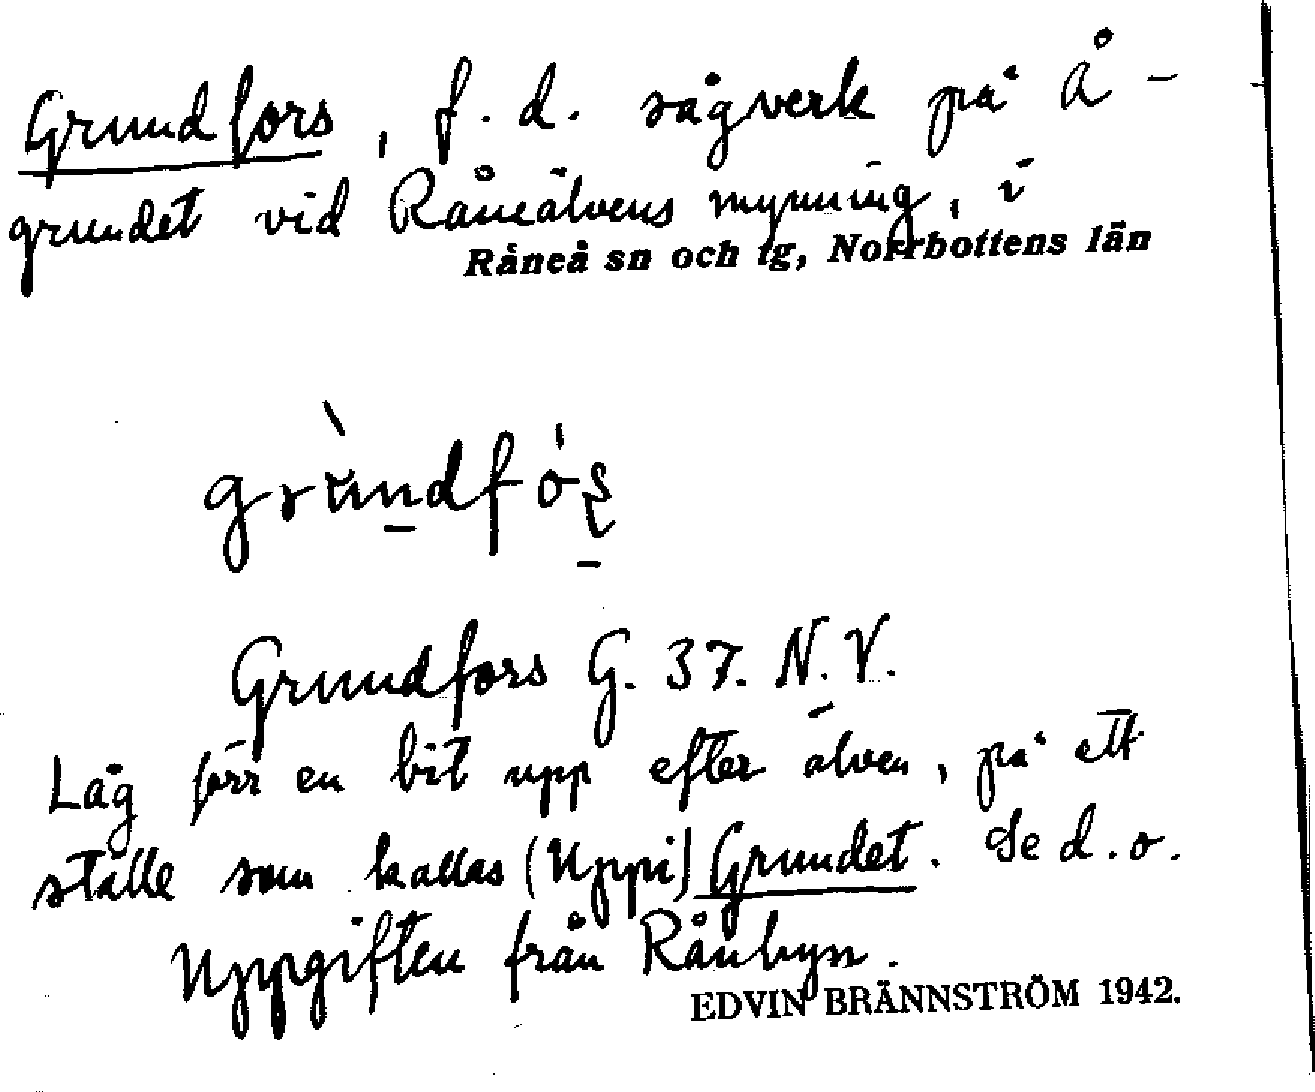 Grundfors, f. d. sågverk på Å-
grundet vid Råneälvens mynning, i
Råneå sn och tg, Norrbottens län
grùndfó
Grundfors G. 37. N.V.
Låg förr en bit upp efter älven, på ett
ställe som kallas (Uppi) Grundet. Se d.o.
Uppgiften från Rånbyn.
EDVIN BRÄNNSTRÖM 1942.